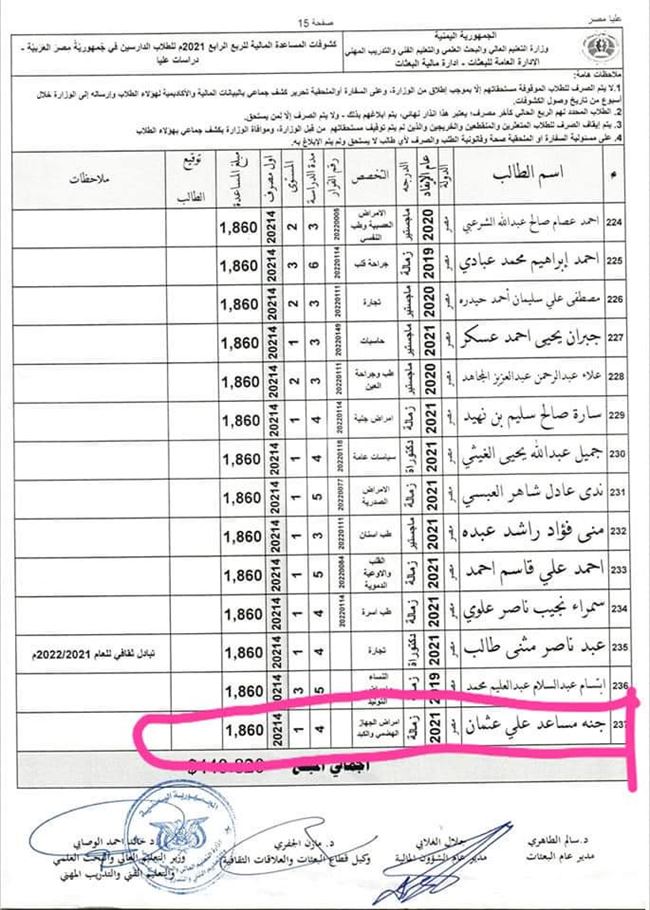 عليا مصر
صفحة 15
الجمهورية اليمنية
وزارة التعليم العالي والبحث العلمي والتعليم الفني والتدريب المهني
الادارة العامة للبعثات - ادارة مالية البعثات
كشوفات المساعدة المالية للربع الرابع 2021م للطلاب الدارسين في جمهورية مصر العربية -
دراسات عليا
ملاحظات هامة:
1. لا يتم الصرف للطلاب الموقوفة مستحقاتهم إلا بموجب إطلاق من الوزارة، وعلى السفارة أو الملحقية تحرير كشف جماعي بالبيانات المالية والأكاديمية لهؤلاء الطلاب وإرساله إلى الوزارة خلال
أسبوع من تاريخ وصول الكشوفات.
2. الطلاب المحدد لهم الربع الحالي كآخر مصرف؛ يعتبر هذا انذار نهائي، يتم ابلاغهم بذلك - ولا يتم الصرف إلا لمن يستحق.
3. يتم إيقاف الصرف للطلاب المتعثرين والمنقطعين والخريجين والذين لم يتم توقيف مستحقاتهم من قبل الوزارة، وموافاة الوزارة بكشف جماعي بهؤلاء الطلاب
4. على مسئولية السفارة أو الملحقية صحة وقانونية الطلب والصرف لأي طالب لا يستحق ولم يتم الإبلاغ به.
م اسم الطالب الدولة عام الإيفاد الدرجه التخصص رقم القرار مدة الدراسة المستوى اول مصرف مبلغ المساعدة توقيع الطالب ملاحظات
224 احمد عصام صالح عبدالله الشرعبي مصر 2020 ماجستير الامراض العصبية وطب النفسي 3 2 20214 1,860
225 احمد إبراهيم محمد عبادي مصر 2019 زمالة جراحة كلب 20220114 6 3 20214 1,860
226 مصطفى علي سليمان أحمد حيدره مصر 2020 ماجستير تجارة 20220111 3 2 20214 1,860
227 جبران يحيى احمد عسكر مصر 2021 ماجستير حاسبات 20220149 3 1 20214 1,860
228 علاء عبدالرحمن عبدالعزيز المجاهد مصر 2020 ماجستير طب وجراحة العين 20220111 3 2 20214 1,860
229 سارة صالح سليم بن نهيد مصر 2021 زمالة امراض جلدية 20220114 4 1 20214 1,860
230 جميل عبدالله يحيى الغيثي مصر 2021 دكتوراة سياسات عامة 20220118 4 1 20214 1,860
231 ندى عادل شاهر العبسي مصر 2021 زمالة الامراض الصدرية 20220077 5 1 20214 1,860
232 منى فؤاد راشد عبده مصر 2021 ماجستير طب اسنان 20220111 3 1 20214 1,860
233 احمد علي قاسم احمد مصر 2021 زمالة القلب والاوعية الدموية 20220084 5 1 20214 1,860
234 سمراء نجيب ناصر علوي مصر 2021 زمالة طب اسرة 20220114 4 1 20214 1,860
235 عبد ناصر مثنى طالب مصر 2021 دكتوراة تجارة 4 1 20214 1,860 تبادل ثقافي للعام 2022/2021م
236 ابتسام عبدالسلام عبدالعليم محمد مصر 2019 زمالة النساء والتوليد 5 3 20214 1,860
237 جنه مساعد علي عثمان مصر 2021 زمالة امراض الجهاز الهضمي والكبد 4 1 20214 1,860
اجمالي المبلغ
د. سالم الطاهري
مدير عام البعثات
جلال الغلابي
مدير عام الشؤون المالية
د. مازن الجفري
وكيل قطاع البعثات والعلاقات الثقافية
د خالد احمد الوصابي
وزير التعليم العالي والبحث العلمي
والتعليم الفني والتدريب المهني